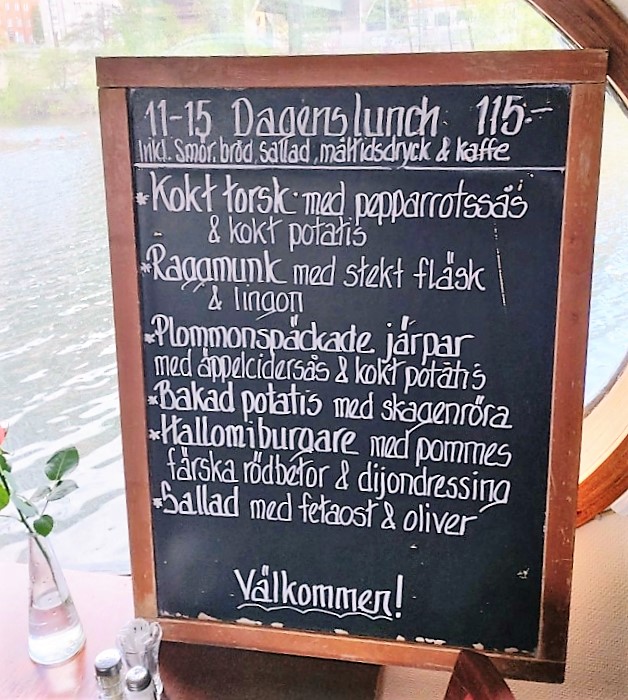 11-15 Dagens lunch 115:-
Inkl. Smör, bröd, sallad, måltidsdryck & kaffe
*Kokt torsk med pepparrotssås
& kokt potatis
*Raggmunk med stekt fläsk
& lingon
*Plommonspäckade järpar
med äppelcidersås & kokt potatis
*Bakad potatis med skagenröra
*Hallomiburgare med pommes
färska rödbetor & dijondressing
*Sallad med fetaost & oliver
Välkommen!